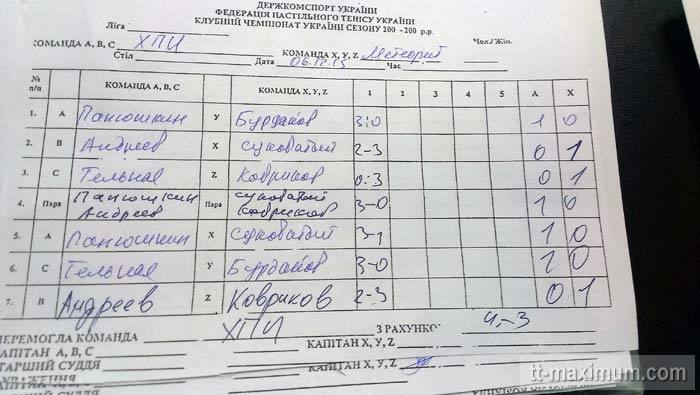 ДЕРЖКОМСПОРТ УКРАЇНИ
ФЕДЕРАЦІЯ НАСТІЛЬНОГО ТЕНІСУ УКРАЇНИ
КЛУБНИЙ ЧЕМПІОНАТ УКРАЇНИ СЕЗОНУ 200 -200 р.р.
Ліга Чол./Жін.
КОМАНДА А, В, С ХПИ КОМАНДА X, Y, Z Метеорит
Стіл Дата 06.12.15 Час
№ п/п КОМАНДА А, В, С КОМАНДА X, Y, Z 1 2 3 4 5 А X
1. А Панюшкин Y Бурдаков 3:0 1 0
2. В Андреев X Суковатый 2-3 0 1
3. С Тельная Z Ковриков 0:3 0 1
4. Пара Панюшкин Андреев Пара Суковатый Ковриков 3-0 1 0
5. А Панюшкин X Суковатый 3-1 1 0
6. С Тельная Y Бурдаков 3-0 1 0
7. В Андреев Z Ковриков 2-3 0 1
ПЕРЕМОГЛА КОМАНДА ХПИ З РАХУНКОМ 4-3
КАПІТАН А, В, С КАПІТАН X, Y, Z
СТАРШИЙ СУДДЯ
КАПІТАН X, Y, Z
ЗАУВАЖЕННЯ
tt-maximum.com